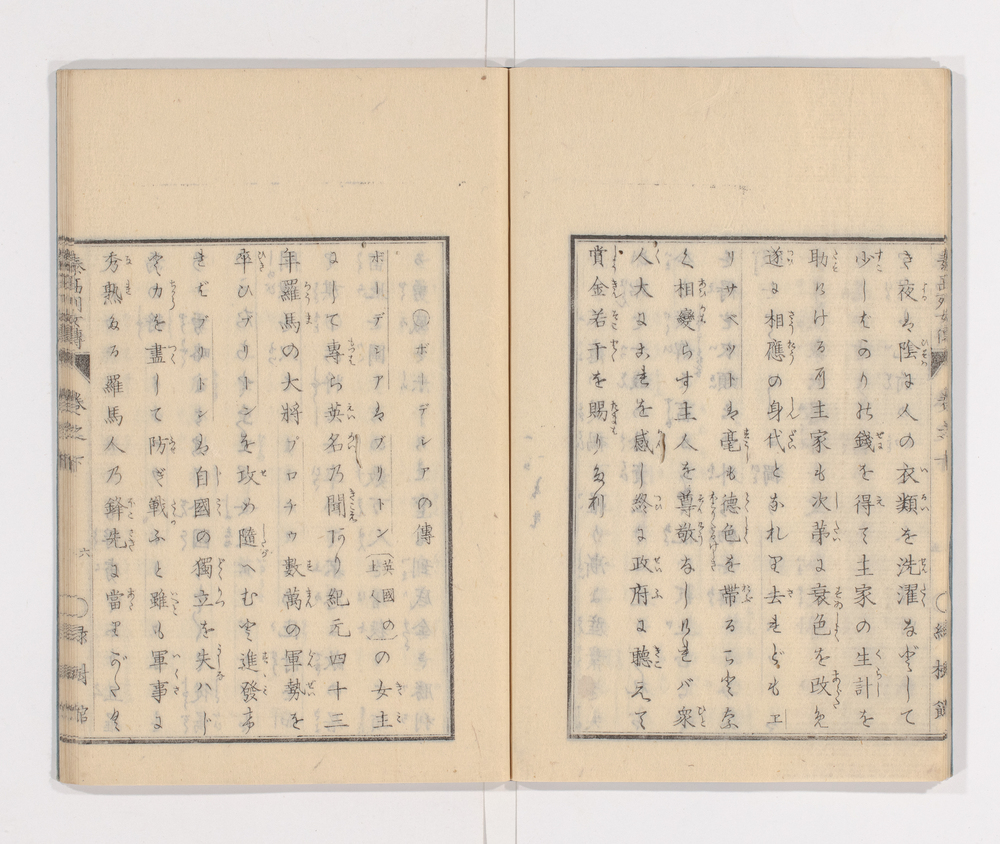 き夜は陰に人の衣類を洗濯なぞして
少しばかりの錢を得て主家の生計を
助けける所主家も次第に衰色を改め
遂に相應の身代となれり去れどもエ
リサベツトは毫も德色を帶ることな
く相變らず主人を尊敬なしければ衆
人大にこれを感じ終に政府に聽えて
賞金若干を賜りたり
○ボーデシアの傳
ボーデシアはブリトン(英國の土人)の女主
にして專ら英名の聞あり紀元四十三
年羅馬の大將プロチウ數萬の軍勢を
率ひブリトンを攻め隨へむと進發す
さればブリトンは自國の獨立を失はじ
と力を盡して防ぎ戰ふと雖も軍事に
秀熟なる羅馬人の鋒先に當りがたく
泰西列女傳 卷之下 六